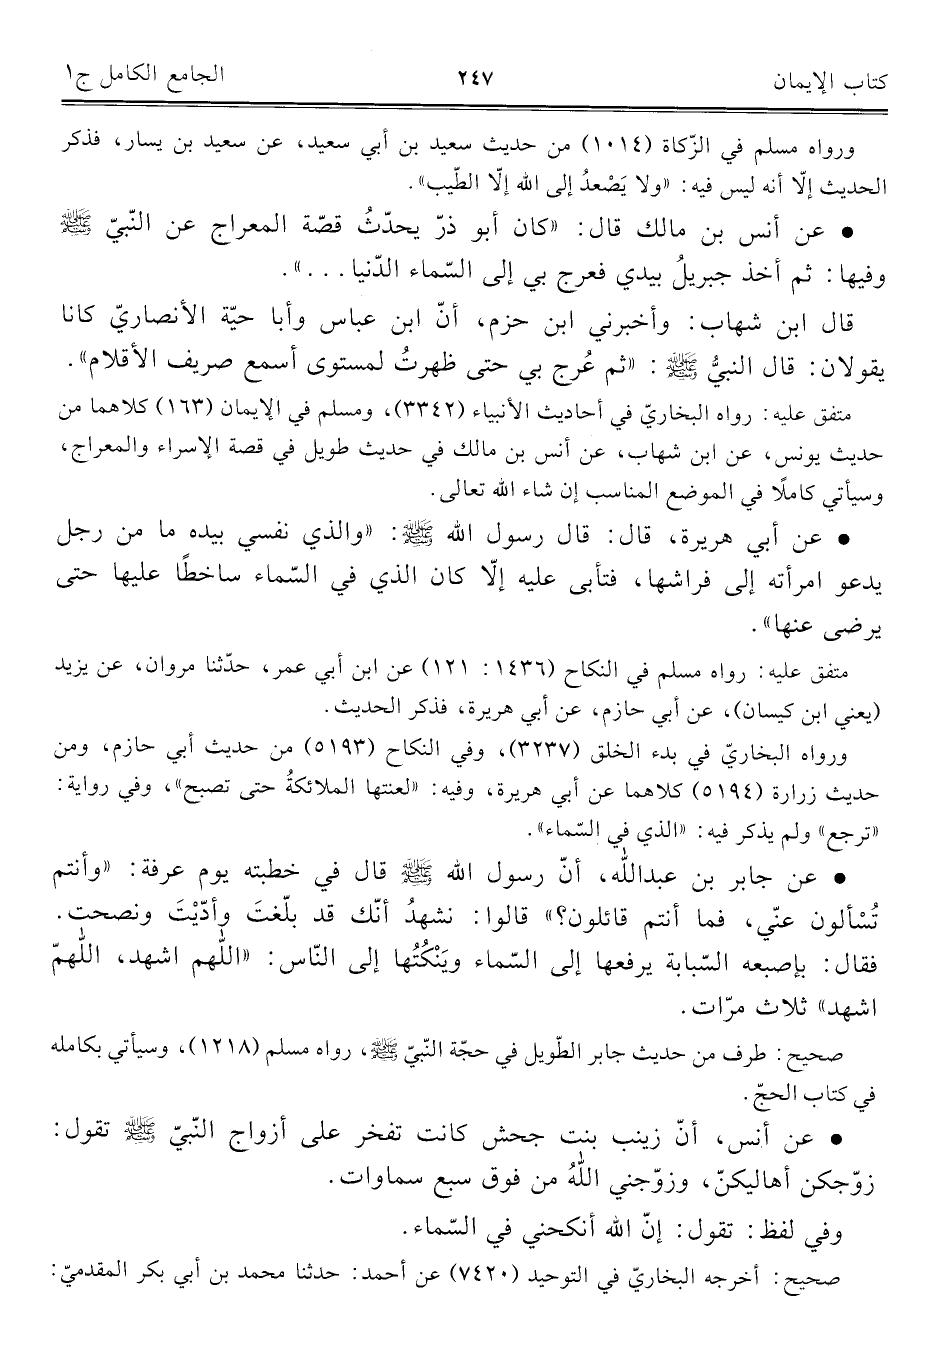 كتاب الإيمان ٢٤٧ الجامع الكامل ج١
ورواه مسلم في الزّكاة (١٠١٤) من حديث سعيد بن أبي سعيد، عن سعيد بن يسار، فذكر
الحديث إلّا أنه ليس فيه: «ولا يَصْعدُ إلى الله إلّا الطّيب».
● عن أنس بن مالك قال: «كان أبو ذرّ يحدّثُ قصّة المعراج عن النّبيّ ﷺ
وفيها: ثم أخذ جبريلُ بيدي فعرج بي إلى السّماء الدّنيا...».
قال ابن شهاب: وأخبرني ابن حزم، أنّ ابن عباس وأبا حيّة الأنصاريّ كانا
يقولان: قال النبيُّ ﷺ: «ثم عُرج بي حتى ظهرتُ لمستوى أسمع صريف الأقلام».
متفق عليه: رواه البخاريّ في أحاديث الأنبياء (٣٣٤٢)، ومسلم في الإيمان (١٦٣) كلاهما من
حديث يونس، عن ابن شهاب، عن أنس بن مالك في حديث طويل في قصة الإسراء والمعراج،
وسيأتي كاملًا في الموضع المناسب إن شاء الله تعالى.
● عن أبي هريرة، قال: قال رسول الله ﷺ: «والذي نفسي بيده ما من رجل
يدعو امرأته إلى فراشها، فتأبى عليه إلّا كان الذي في السّماء ساخطًا عليها حتى
يرضى عنها».
متفق عليه: رواه مسلم في النكاح (١٤٣٦: ١٢١) عن ابن أبي عمر، حدّثنا مروان، عن يزيد
(يعني ابن كيسان)، عن أبي حازم، عن أبي هريرة، فذكر الحديث.
ورواه البخاريّ في بدء الخلق (٣٢٣٧)، وفي النكاح (٥١٩٣) من حديث أبي حازم، ومن
حديث زرارة (٥١٩٤) كلاهما عن أبي هريرة، وفيه: «لعنتها الملائكةُ حتى تصبح»، وفي رواية:
«ترجع» ولم يذكر فيه: «الذي في السّماء».
● عن جابر بن عبدالله، أنّ رسول الله ﷺ قال في خطبته يوم عرفة: «وأنتم
تُسْألون عنّي، فما أنتم قائلون؟» قالوا: نشهدُ أنّك قد بلّغتَ وأدّيْتَ ونصحت.
فقال: بإصبعه السّبابة يرفعها إلى السّماء ويَنْكُتُها إلى النّاس: «اللّهم اشهد، اللّهمّ
اشهد» ثلاث مرّات.
صحيح: طرف من حديث جابر الطّويل في حجّة النّبيّ ﷺ، رواه مسلم (١٢١٨)، وسيأتي بكامله
في كتاب الحجّ.
● عن أنس، أنّ زينب بنت جحش كانت تفخر على أزواج النّبيّ ﷺ تقول:
زوّجكن أهاليكنّ، وزوّجني اللّهُ من فوق سبع سماوات.
وفي لفظ: تقول: إنّ الله أنكحني في السّماء.
صحيح: أخرجه البخاريّ في التوحيد (٧٤٢٠) عن أحمد: حدثنا محمد بن أبي بكر المقدميّ: